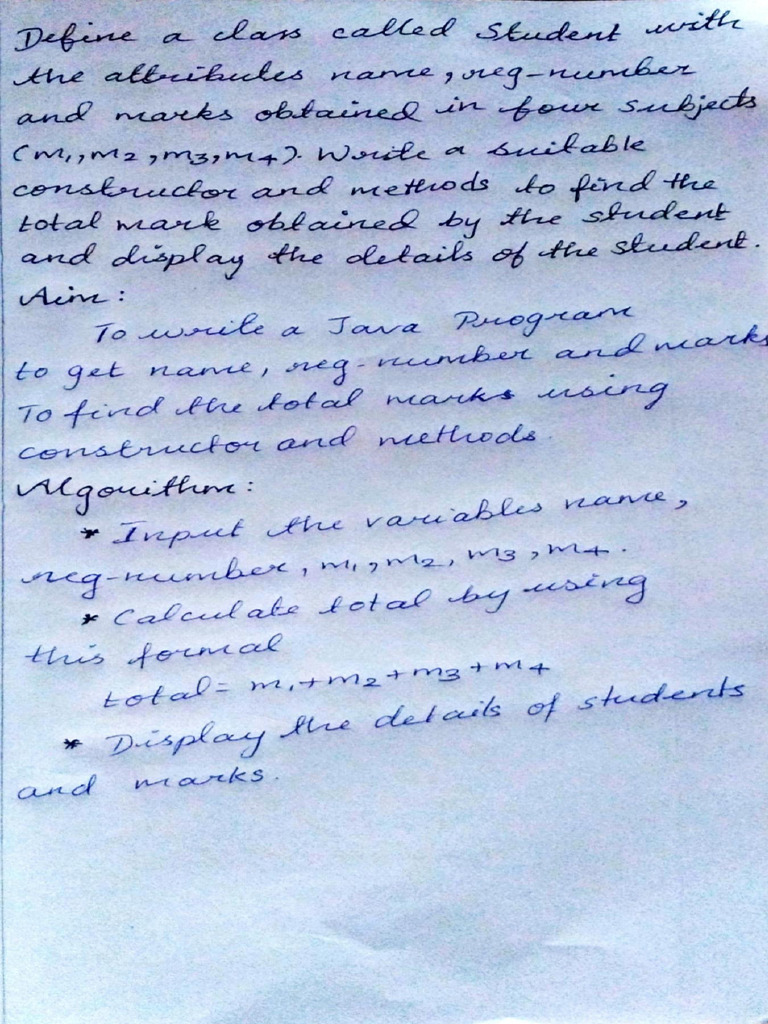 Define a class called Student with
the attributes name, reg-number
and marks obtained in four subjects
(m1, m2, m3, m4). Write a suitable
constructor and methods to find the
total mark obtained by the student
and display the details of the student.
Aim:
To write a Java Program
to get name, reg-number and marks
To find the total marks using
constructor and methods.
Algorithm:
* Input the variables name,
reg-number, m1, m2, m3, m4.
* Calculate total by using
this formal
total = m1+m2+m3+m4
* Display the details of students
and marks.